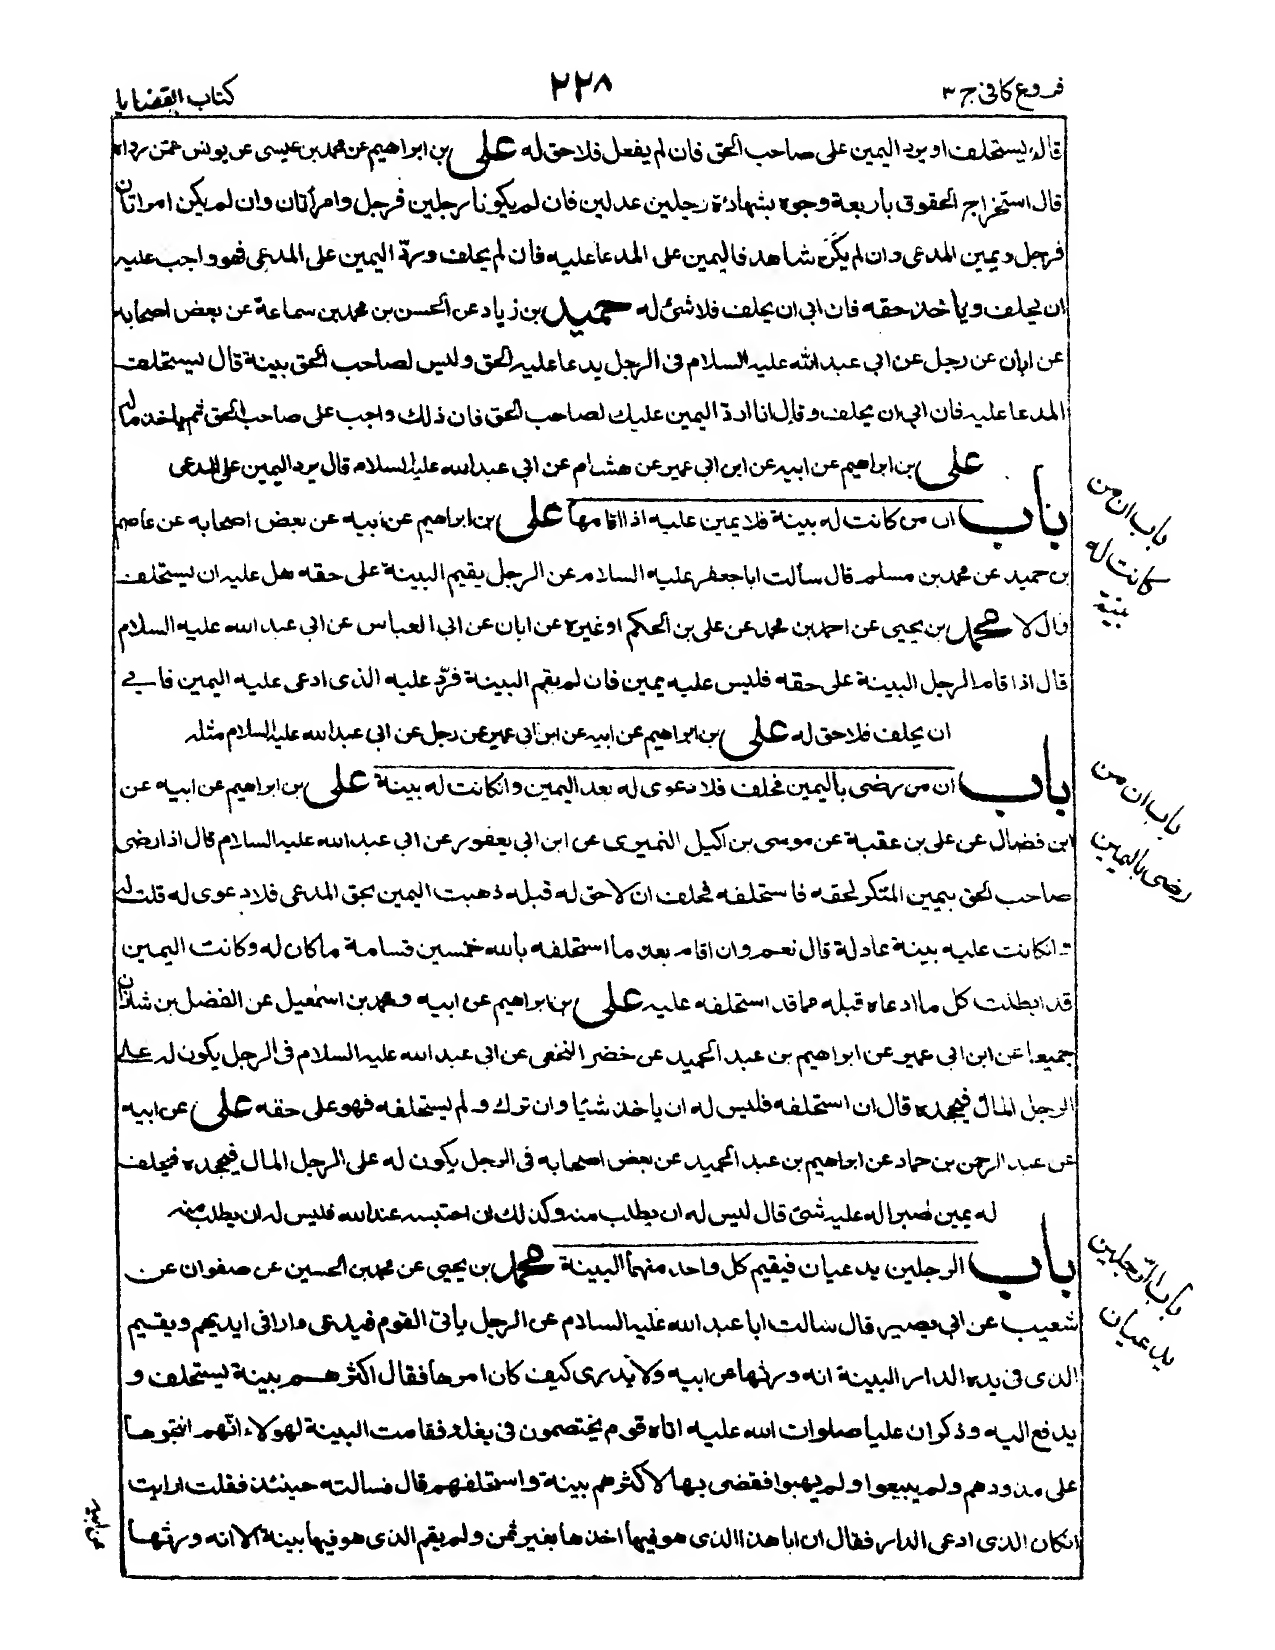 فروع كافى ج ٣
٢٢٨
كتاب القضايا
قال يستحلف او يرد اليمين على صاحب الحق فان لم يفعل فلا حق له على بن ابراهيم عن محمد بن عيسى عن يونس عمن رواه
قال استخراج الحقوق باربعة وجوه بشهادة رجلين عدلين فان لم يكونا رجلين فرجل وامرأتان وان لم يكن امراتان
فرجل ويمين المدعى وان لم يكن شاهد فاليمين على المدعا عليه فان لم يحلف ورد اليمين على المدعى فهو واجب عليه
ان يحلف وياخذ حقه فان ابى ان يحلف فلا شئ له حميد بن زياد عن الحسن بن محمد بن سماعة عن بعض اصحابه
عن ابان عن رجل عن ابي عبد الله عليه السلام فى الرجل يدعا عليه الحق وليس لصاحب الحق بينة قال يستحلف
المدعا عليه فان ابى ان يحلف وقال انا ارد اليمين عليك لصاحب الحق فان ذلك واجب على صاحب الحق ثم ياخذ ماله
على بن ابراهيم عن ابيه عن ابن ابي عمير عن هشام عن ابي عبد الله عليه السلام قال يرد اليمين على المدعى
باب ان من كانت له بينة فلا يمين عليه اذا اقامها على بن ابراهيم عن ابيه عن بعض اصحابه عن عاصم
بن حميد عن محمد بن مسلم قال سألت ابا جعفر عليه السلام عن الرجل يقيم البينة على حقه هل عليه ان يستحلف
قال لا محمد بن يحيى عن احمد بن محمد عن على بن الحكم او غيره عن ابان عن ابي العباس عن ابي عبد الله عليه السلام
قال اذا اقام الرجل البينة على حقه فليس عليه يمين فان لم يقم البينة فرد عليه الذى ادعى عليه اليمين فابى
ان يحلف فلا حق له على بن ابراهيم عن ابيه عن ابن ابي عمير عن رجل عن ابي عبد الله عليه السلام مثله
باب ان من رضى باليمين فحلف فلا دعوى له بعد اليمين وانكانت له بينة على بن ابراهيم عن ابيه عن
ابن فضال عن على بن عقبة عن موسى بن اكيل النميرى عن ابن ابي يعفور عن ابي عبد الله عليه السلام قال اذا رضى
صاحب الحق بيمين المنكر لحقه فاستحلفه فحلف ان لا حق له قبله ذهبت اليمين بحق المدعى فلا دعوى له قلت له
انكانت عليه بينة عادلة قال نعم وان اقام بعد ما استحلفه بالله خمسين قسامة ما كان له وكانت اليمين
قد ابطلت كل ما ادعاه قبله مما قد استحلفه عليه على بن ابراهيم عن ابيه ومحمد بن اسمعيل عن الفضل بن شاذان
جميعا عن ابن ابي عمير عن ابراهيم بن عبد الحميد عن خضر النخعى عن ابي عبد الله عليه السلام فى الرجل يكون له على
الرجل المال فيجحده قال ان استحلفه فليس له ان ياخذ شيئا وان ترك ولم يستحلفه فهو على حقه على عن ابيه
عن عبد الرحمن بن حماد عن ابراهيم بن عبد الحميد عن بعض اصحابه فى الرجل يكون له على الرجل المال فيجحده فيحلف
له يمين صبر اله عليه شئ قال ليس له ان يطلب منه وكذلك ان احتسبه عند الله فليس له ان يطلب منه
باب الرجلين يدعيان فيقيم كل واحد منهما البينة محمد بن يحيى عن محمد بن الحسين عن صفوان عن
شعيب عن ابي بصير قال سالت ابا عبد الله عليه السلام عن الرجل يأتى القوم فيدعى دارا فى ايديهم ويقيم
الذى فى يده الدار البينة انه ورثها عن ابيه ولا يدرى كيف كان امرها فقال اكثرهم بينة يستحلف و
يدفع اليه وذكر ان عليا صلوات الله عليه اتاه قوم يختصمون فى بغلة فقامت البينة لهولاء انهم انتجوها
على مذودهم ولم يبيعوا ولم يهبوا فقضى بها لاكثرهم بينة واستحلفهم قال فسالته حينئذ فقلت ارايت
انكان الذى ادعى الدار فقال ان ابا هذا الذى هو فيها اخذها بغير ثمن ولم يقم الذى هو فيها بينة الا انه ورثها
باب ان من
كانت له
بينة
باب ان من
رضى باليمين
باب الرجلين
يدعيان
عن ابيه